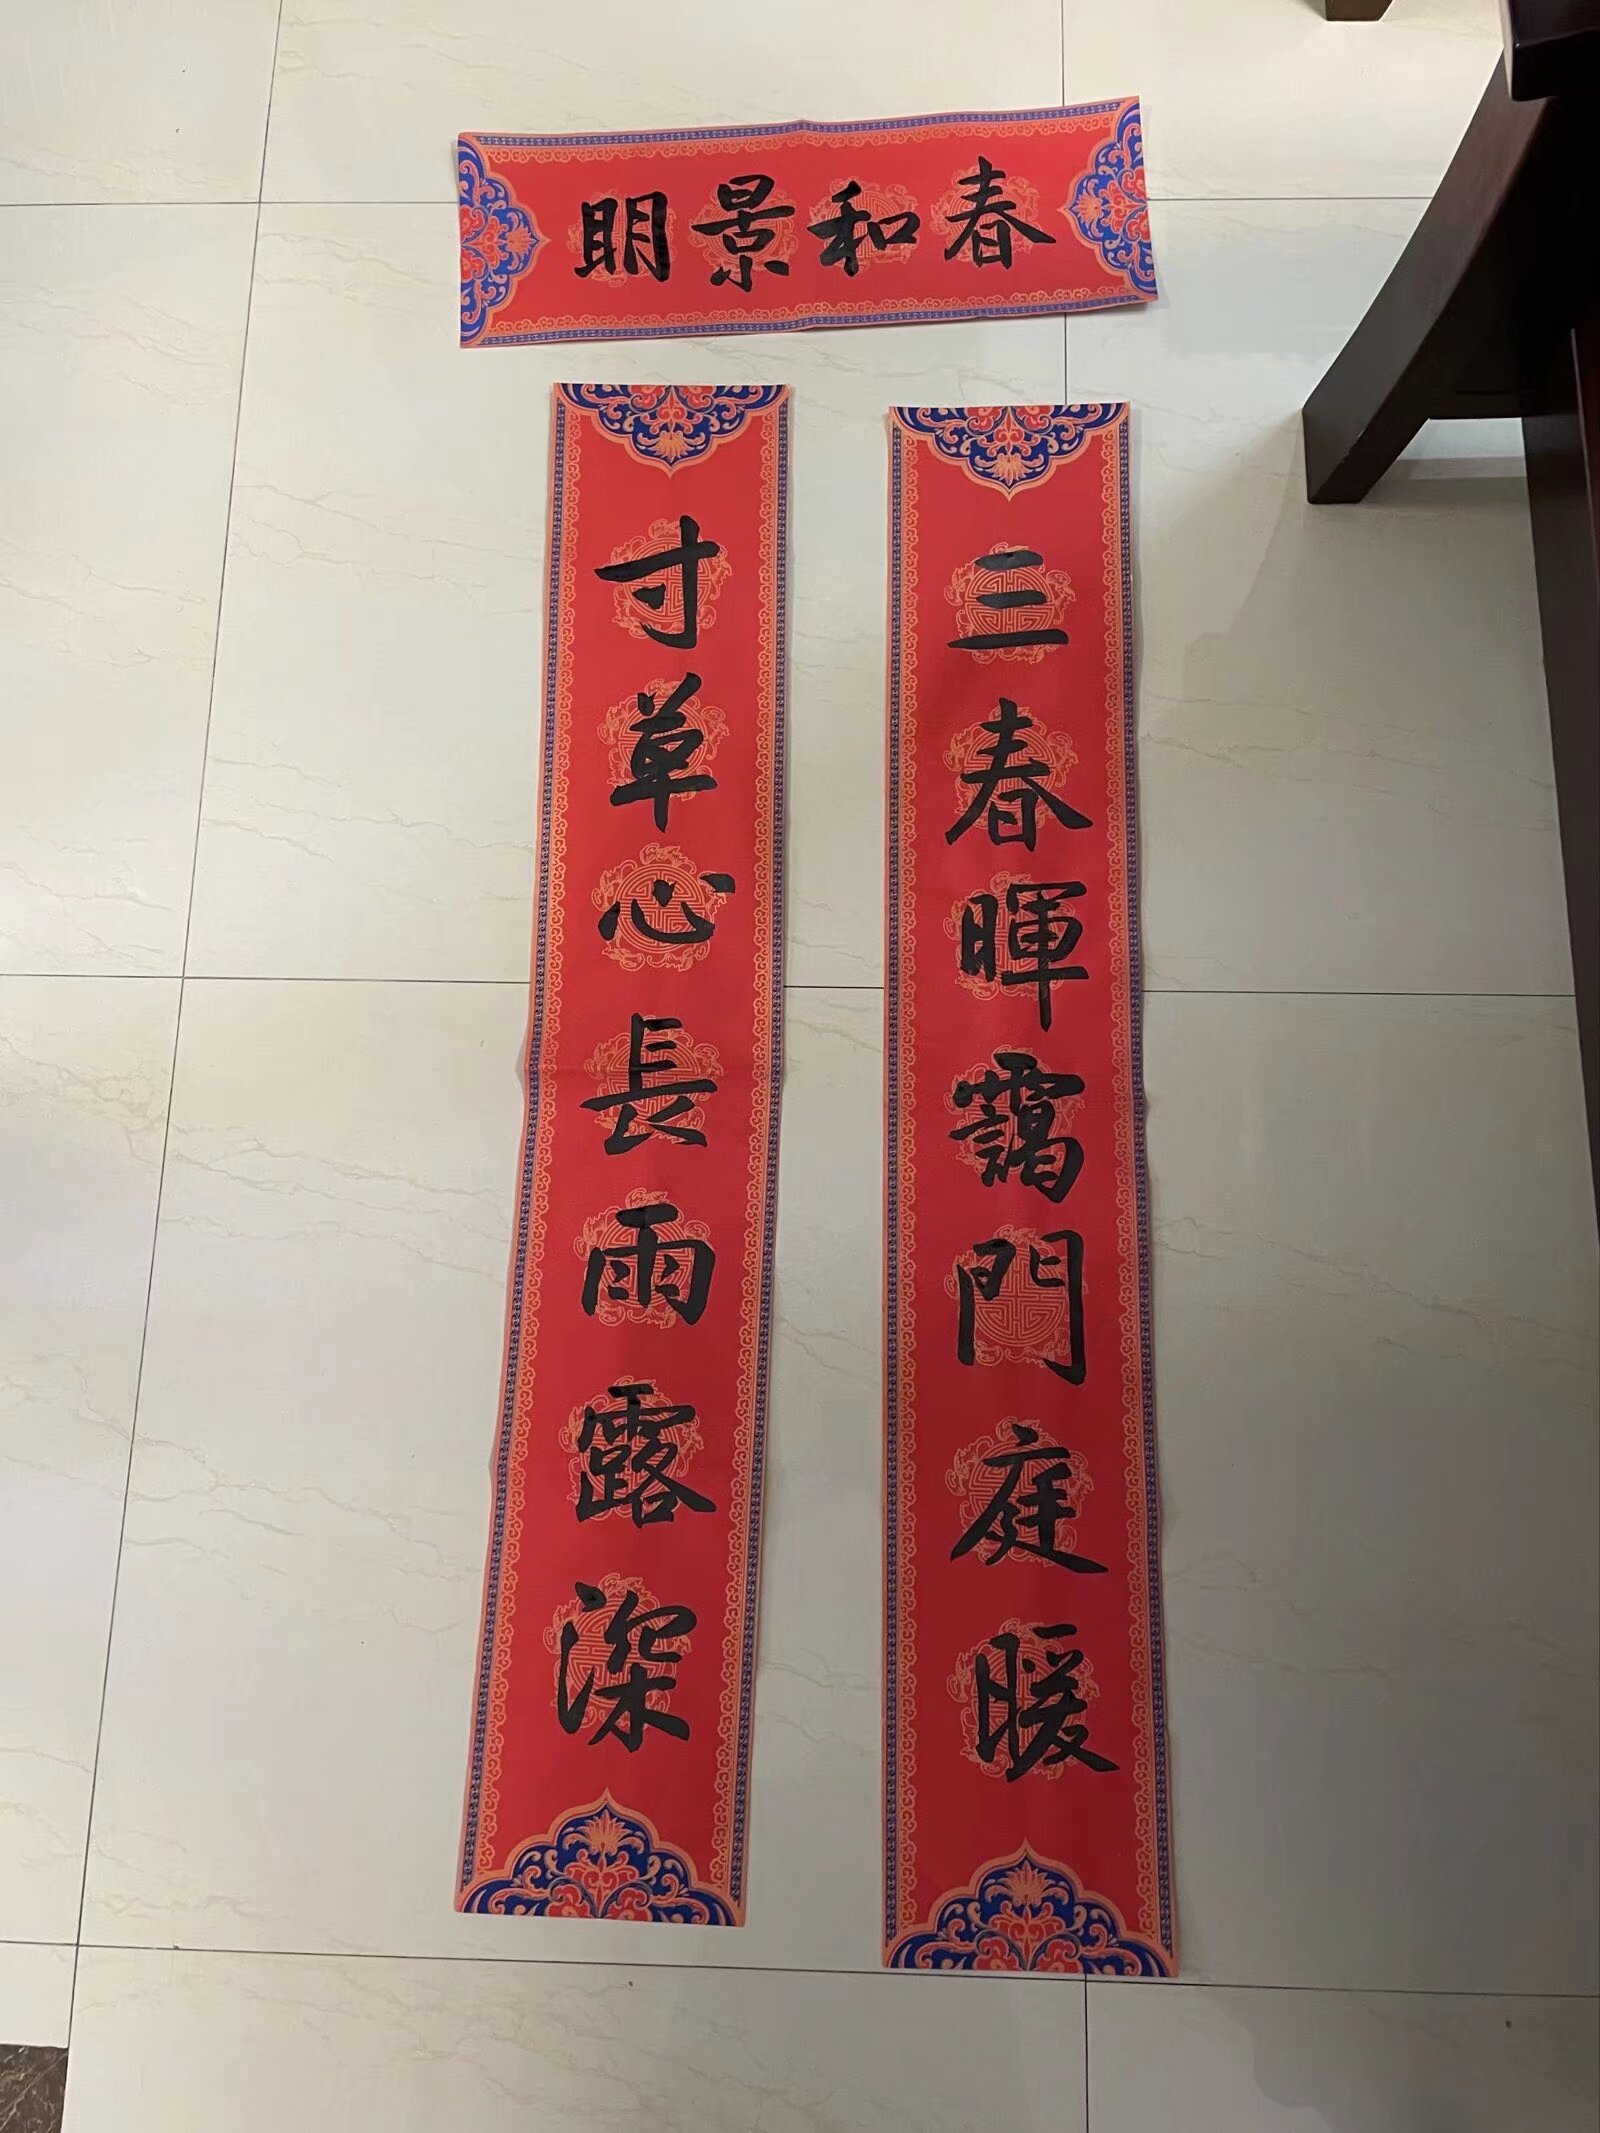 春和景明
三春暉靄門庭暖
寸草心長雨露深